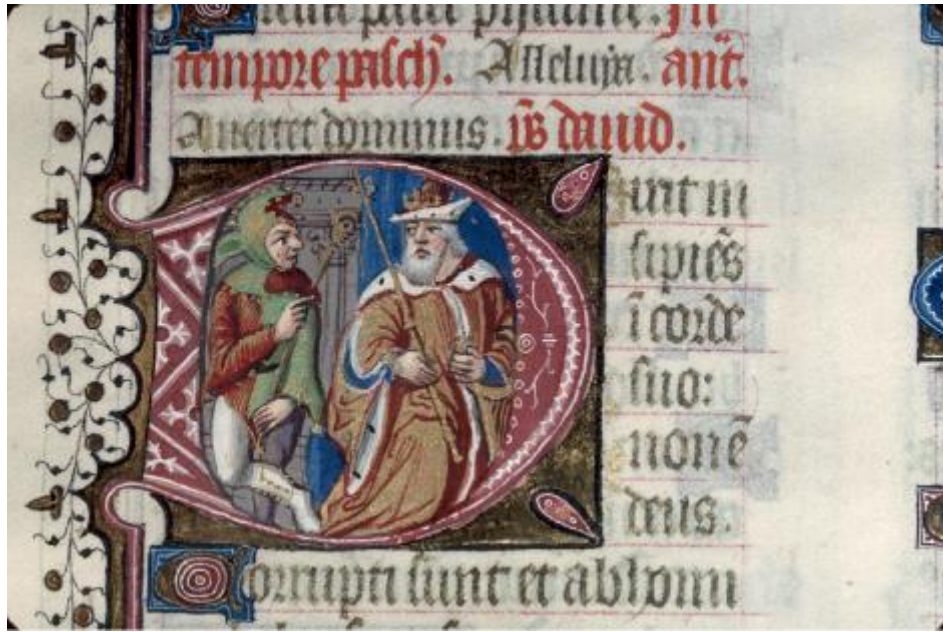 In
tempore pasch̄. Alleluya. añt.
Avertet dominus. p̄s david.
D ixit in
sipiēs
ī corde
suo:
non ē
deus.
Corrupti sunt et abhomi